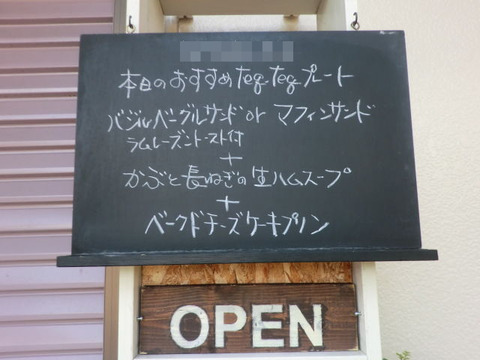 本日のおすすめteg-tegプレート
バジルベーグルサンドor マフィンサンド
ラムレーズントースト付
+
かぶと長ねぎの生ハムスープ
+
ベークドチーズケーキプリン
OPEN